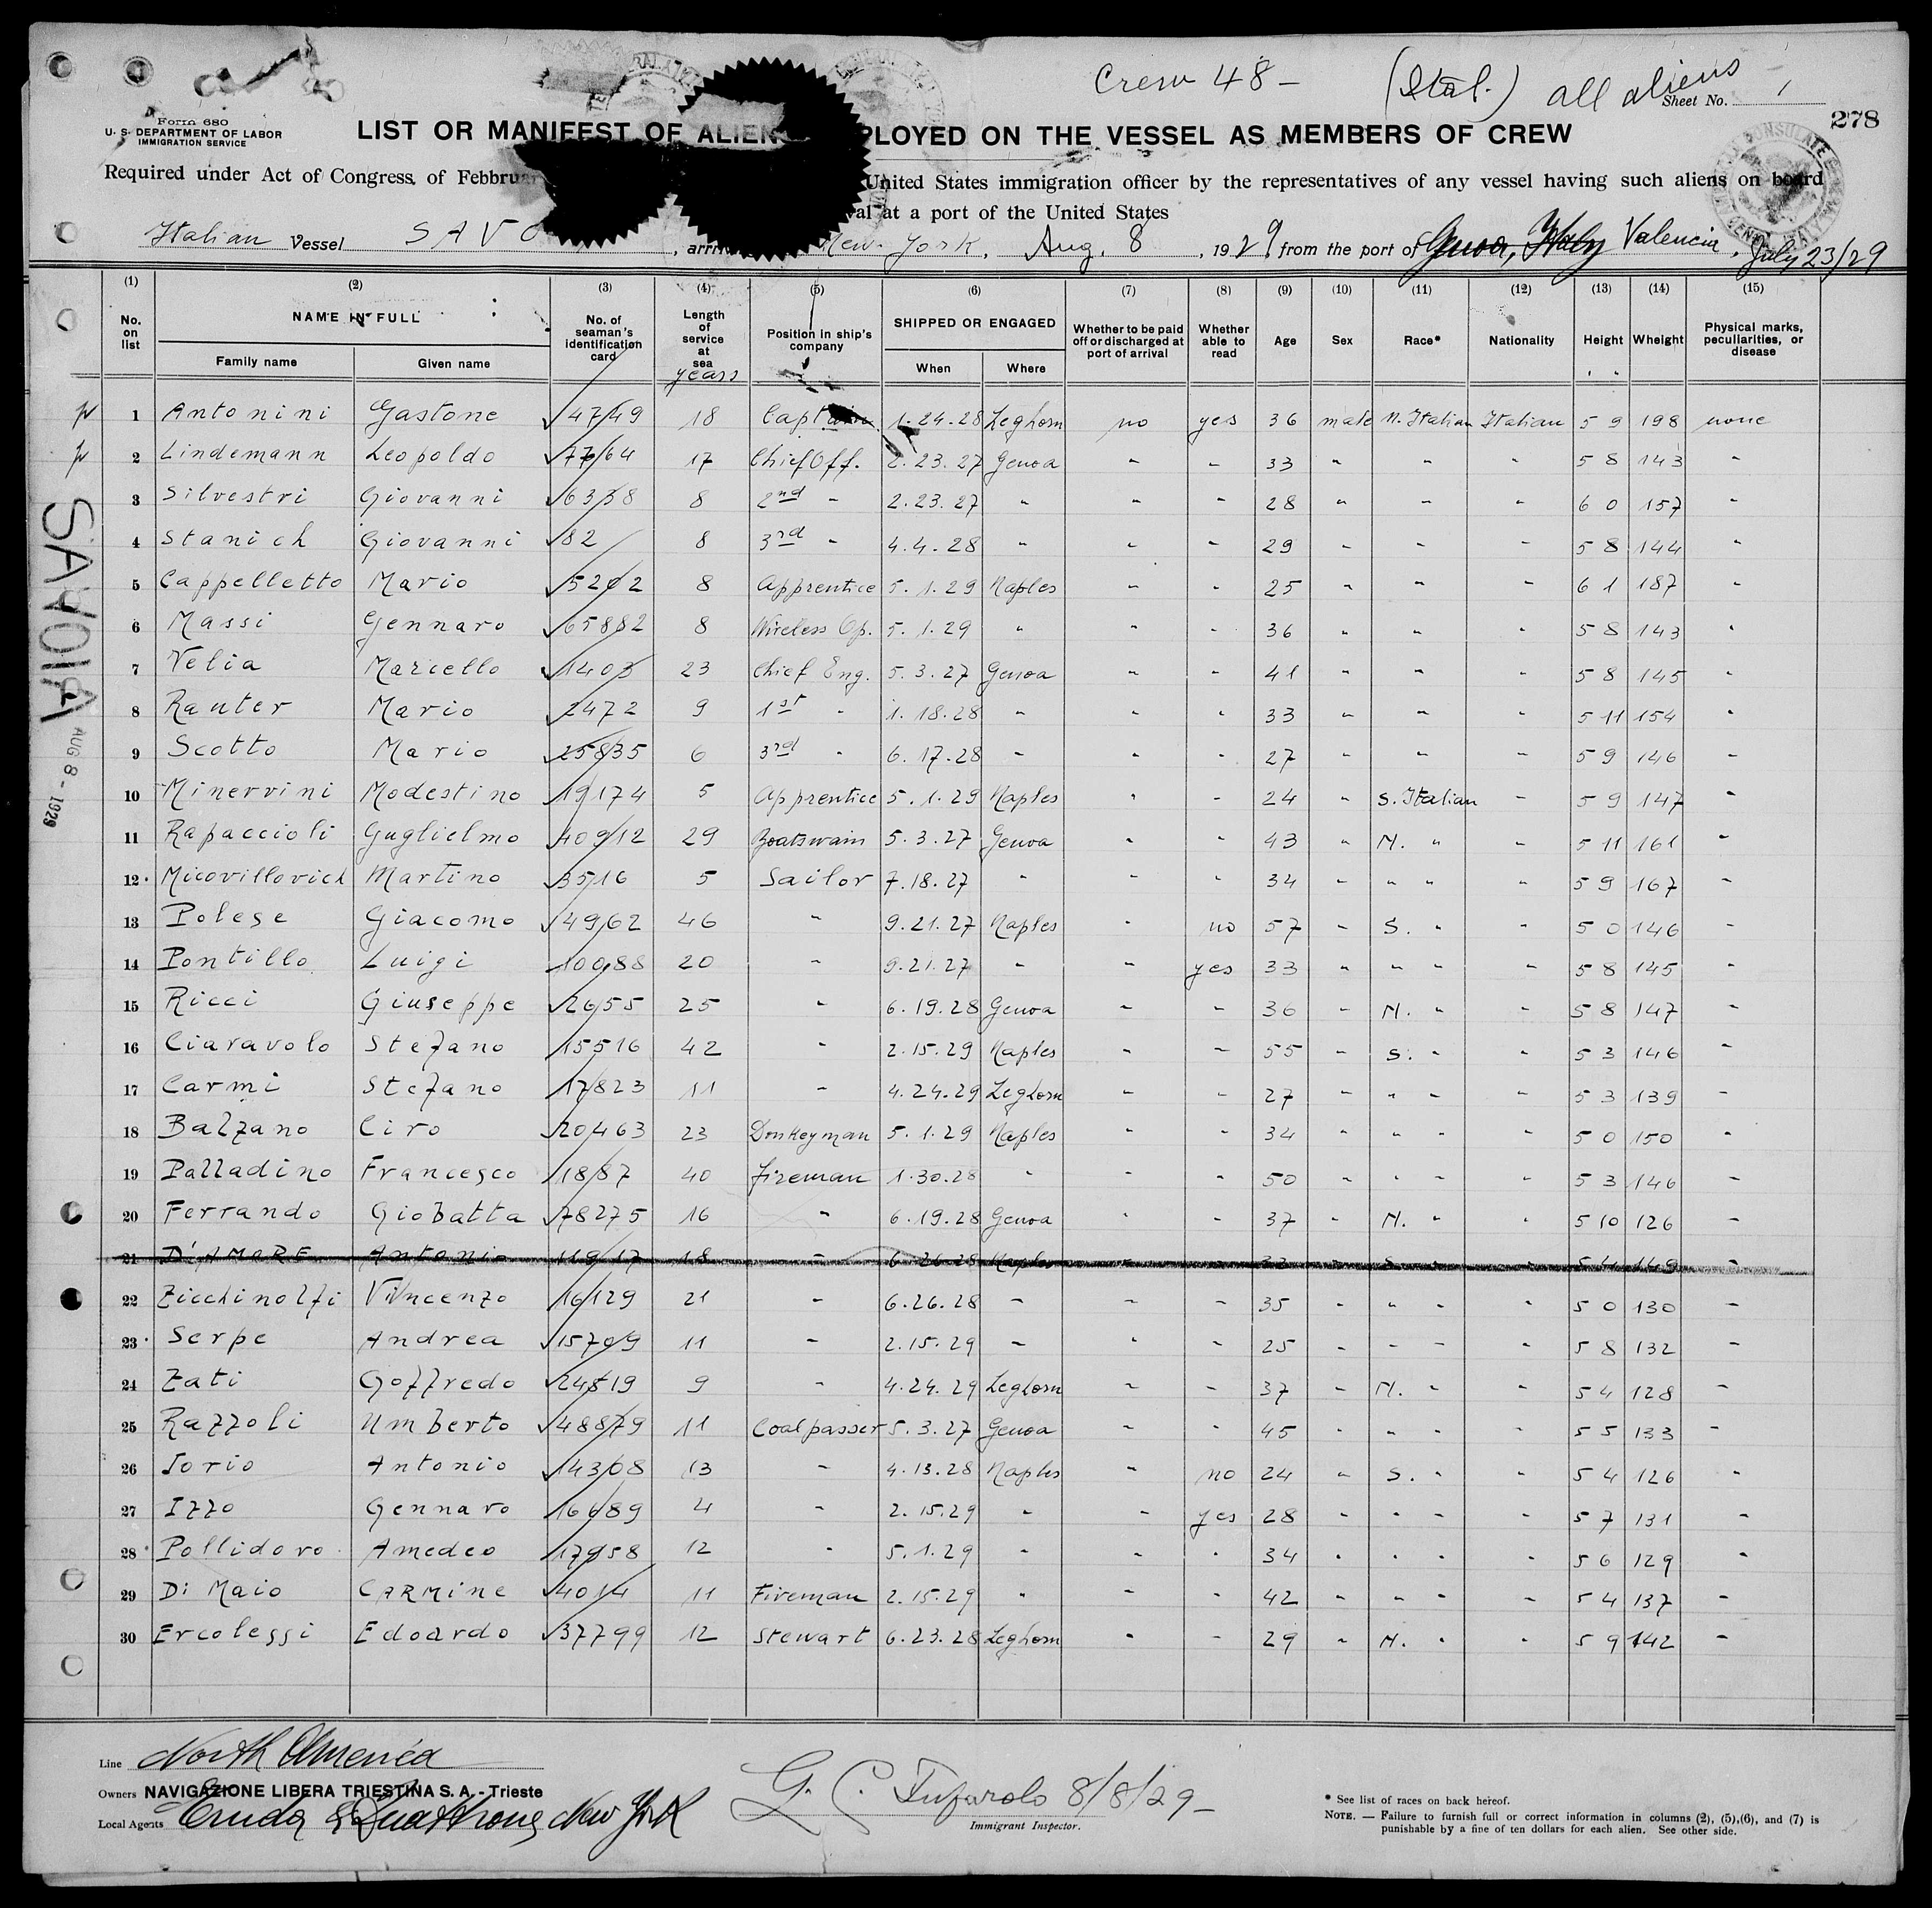 Crew 48 - (Ital.) all aliens
Sheet No. 1
278
Form 680
U. S. DEPARTMENT OF LABOR
IMMIGRATION SERVICE
LIST OR MANIFEST OF ALIEN PLOYED ON THE VESSEL AS MEMBERS OF CREW
Required under Act of Congress of Febbruar United States immigration officer by the representatives of any vessel having such aliens on board
val at a port of the United States
Italian Vessel SAVO , arri New-York, Aug. 8, 1929, from the port of Genoa, Italy Valencia, July 23/29
(1) (2) (3) (4) (5) (6) (7) (8) (9) (10) (11) (12) (13) (14) (15)
No. on list
NAME IN FULL
Family name Given name
No. of seaman's identification card
Length of service at sea years
Position in ship's company
SHIPPED OR ENGAGED
When Where
Whether to be paid off or discharged at port of arrival
Whether able to read
Age Sex Race* Nationality Height Wheight
Physical marks, peculiarities, or disease
1 Antonini Gastone 4749 18 Captain 1.24.28 Leghorn no yes 36 male N. Italian Italian 5 9 198 none
2 Lindemann Leopoldo 7764 17 Chief Off. 2.23.27 Genoa - - 33 - - - 5 8 143 -
3 Silvestri Giovanni 6358 8 2nd - 2.23.27 - - - 28 - - - 6 0 157 -
4 Stanich Giovanni 82 8 3rd - 4.4.28 - - - 29 - - - 5 8 144 -
5 Cappelletto Mario 5202 8 Apprentice 5.1.29 Naples - - 25 - - - 6 1 187 -
6 Massi Gennaro 65882 8 Wireless Op. 5.1.29 - - - 36 - - - 5 8 143 -
7 Velia Marcello 1403 23 Chief Eng. 5.3.27 Genoa - - 41 - - - 5 8 145 -
8 Rauter Mario 2472 9 1st - 1.18.28 - - - 33 - - - 5 11 154 -
9 Scotto Mario 25835 6 3rd - 6.17.28 - - - 27 - - - 5 9 146 -
10 Minervini Modestino 19174 5 Apprentice 5.1.29 Naples - - 24 - S. Italian - 5 9 147 -
11 Rapaccioli Guglielmo 40912 29 Boatswain 5.3.27 Genoa - - 43 - N. - - 5 11 161 -
12 Micovillovich Martino 3516 5 Sailor 7.18.27 - - - 34 - - - - 5 9 167 -
13 Polese Giacomo 4962 46 - 9.21.27 Naples - no 57 - S. - - 5 0 146 -
14 Pontillo Luigi 10088 20 - 9.21.27 - - yes 33 - - - - 5 8 145 -
15 Ricci Giuseppe 2655 25 - 6.19.28 Genoa - - 36 - N. - - 5 8 147 -
16 Ciaravolo Stefano 15516 42 - 2.15.29 Naples - - 55 - S. - - 5 3 146 -
17 Carmi Stefano 17823 11 - 4.24.29 Leghorn - - 27 - - - - 5 3 139 -
18 Balzano Ciro 20463 23 Donkeyman 5.1.29 Naples - - 34 - - - - 5 0 150 -
19 Palladino Francesco 1887 40 Fireman 1.30.28 - - - 50 - - - - 5 3 146 -
20 Ferrando Giobatta 78275 16 - 6.19.28 Genoa - - 37 - N. - - 5 10 126 -
21 D'AMORE Antonio 11917 18 - 6.26.28 Naples - - - S. - - 5 4 149 -
22 Zicchinolfi Vincenzo 16129 21 - 6.26.28 - - - 35 - - - - 5 0 130 -
23 Serpe Andrea 15709 11 - 2.15.29 - - - 25 - - - - 5 8 132 -
24 Zati Goffredo 24519 9 - 4.24.29 Leghorn - - 37 - N. - - 5 4 128 -
25 Razzoli Umberto 48879 11 Coalpasser 5.3.27 Genoa - - 45 - - - - 5 5 133 -
26 Iorio Antonio 14308 13 - 4.13.28 Naples - no 24 - S. - - 5 4 126 -
27 Izzo Gennaro 16689 4 - 2.15.29 - - yes 28 - - - - 5 7 131 -
28 Pollidoro Amedeo 17958 12 - 5.1.29 - - - 34 - - - - 5 6 129 -
29 Di Maio CARMine 4014 11 Fireman 2.15.29 - - - 42 - - - - 5 4 137 -
30 Ercolessi Edoardo 37799 12 Stewart 6.23.28 Leghorn - - 29 - N. - - 5 9 142 -
SAVOIA
AUG 8 - 1929
Line North America
Owners NAVIGAZIONE LIBERA TRIESTINA S. A. - Trieste
Local Agents New York
G. C. Tufarolo 8/8/29
Immigrant Inspector.
* See list of races on back hereof.
NOTE. — Failure to furnish full or correct information in columns (2), (5),(6), and (7) is
punishable by a fine of ten dollars for each alien. See other side.